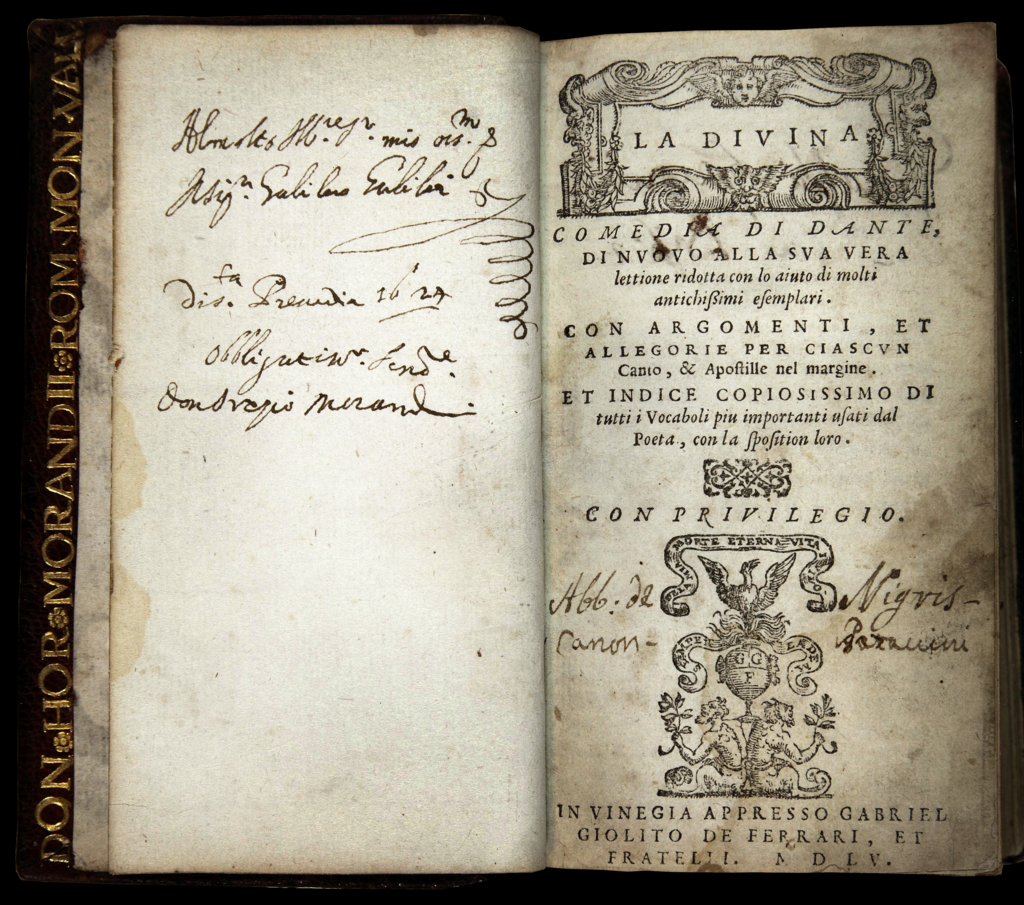 DON HOR MORANDII ROM MON VAL
Al molto Ill.re Sr. mio oss.mo
Galileo Galilei
dis.
1624
Obbligatiss.
Don Orazio Morandi
LA DIVINA
COMEDIA DI DANTE,
DI NVOVO ALLA SVA VERA
lettione ridotta con lo aiuto di molti
antichißimi esemplari.
CON ARGOMENTI, ET
ALLEGORIE PER CIASCVN
Canto, & Apostille nel margine.
ET INDICE COPIOSISSIMO DI
tutti i Vocaboli piu importanti usati dal
Poeta, con la sposition loro.
CON PRIVILEGIO.
DE LA MIA MORTE ETERNA VITA I VIVO
Abb: de Nigris-
Canon-
SEMPER EADEM
GG
F
IN VINEGIA APPRESSO GABRIEL
GIOLITO DE FERRARI, ET
FRATELLI. M D LV.